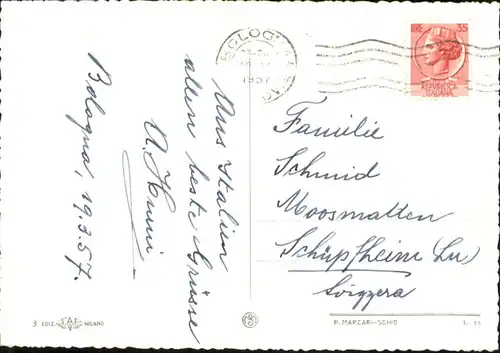 BOLOGNA
1957
L. 35
REPVBBLICA
ITALIANA
Bologna, 19.3.57.
Aus Italien
allen beste Grüsse
Familie
Schmid
Moosmatten
Schüpfheim (Lu)
Svizzera
3 EDIZ. SAF MILANO
P. MARZARI-SCHIO